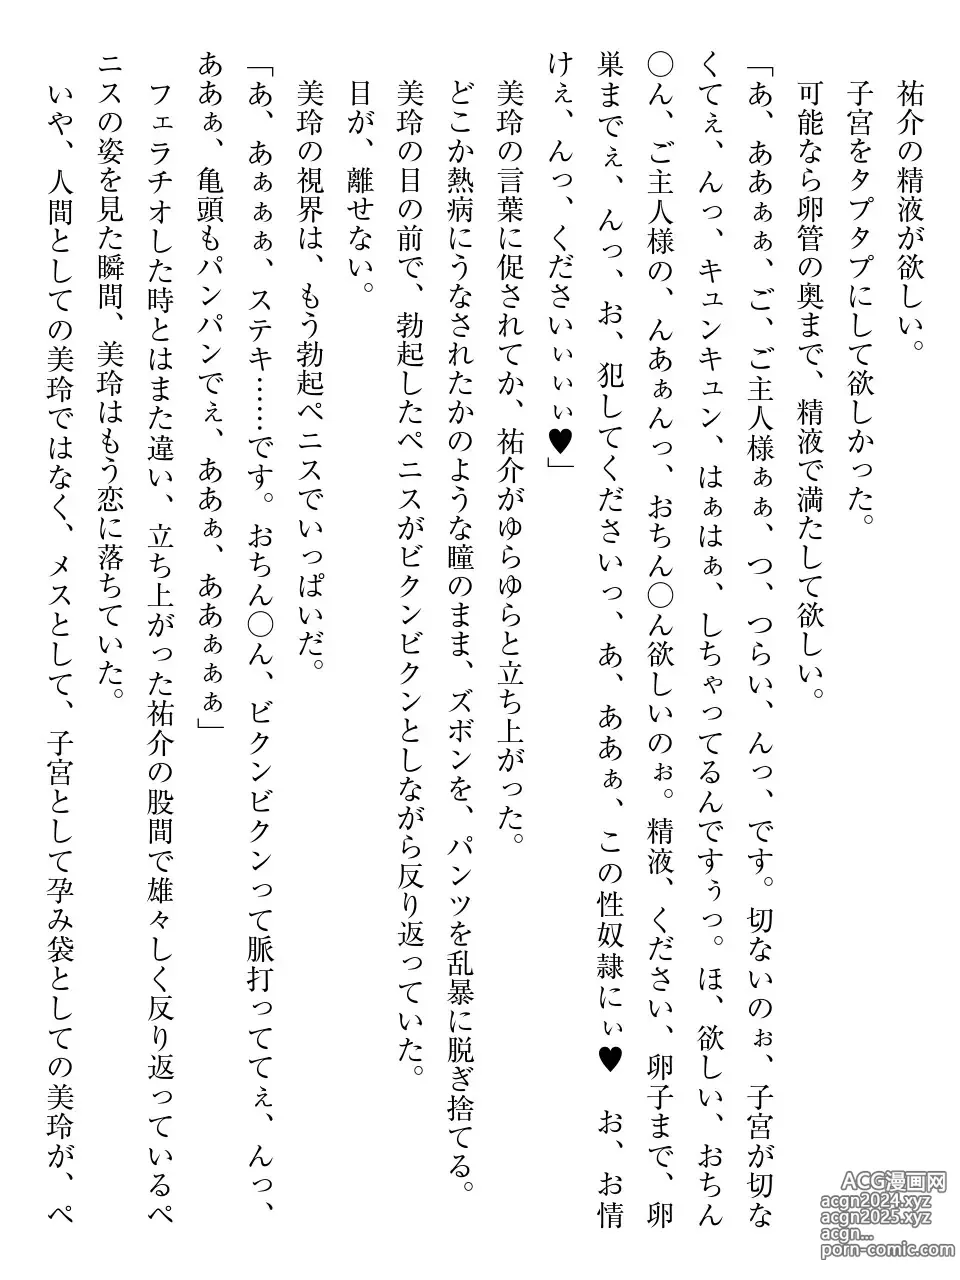 祐介の精液が欲しい。
子宮をタプタプにして欲しかった。
可能なら卵管の奥まで、精液で満たして欲しい。
「あ、ああぁぁ、ご、ご主人様ぁぁ、つ、つらい、んっ、です。切ないのぉ、子宮が切な
くてぇ、んっ、キュンキュン、はぁはぁ、しちゃってるんですぅっ。ほ、欲しい、おちん
〇ん、ご主人様の、んあぁんっ、おちん〇ん欲しいのぉ。精液、ください、卵子まで、卵
巣までぇ、んっ、お、犯してくださいっ、あ、ああぁ、この性奴隷にぃ♥　お、お情
けぇ、んっ、くださいぃぃぃ♥」
美玲の言葉に促されてか、祐介がゆらゆらと立ち上がった。
どこか熱病にうなされたかのような瞳のまま、ズボンを、パンツを乱暴に脱ぎ捨てる。
美玲の目の前で、勃起したペニスがビクンビクンとしながら反り返っていた。
目が、離せない。
美玲の視界は、もう勃起ペニスでいっぱいだ。
「あ、あぁぁぁ、ステキ……です。おちん〇ん、ビクンビクンって脈打っててぇ、んっ、
ああぁ、亀頭もパンパンでぇ、ああぁ、ああぁぁぁ」
フェラチオした時とはまた違い、立ち上がった祐介の股間で雄々しく反り返っているペ
ニスの姿を見た瞬間、美玲はもう恋に落ちていた。
いや、人間としての美玲ではなく、メスとして、子宮として孕み袋としての美玲が、ペ
ACG漫画网
acgn2024.xyz
acgn2025.xyz
acgn...
porn-comic.com